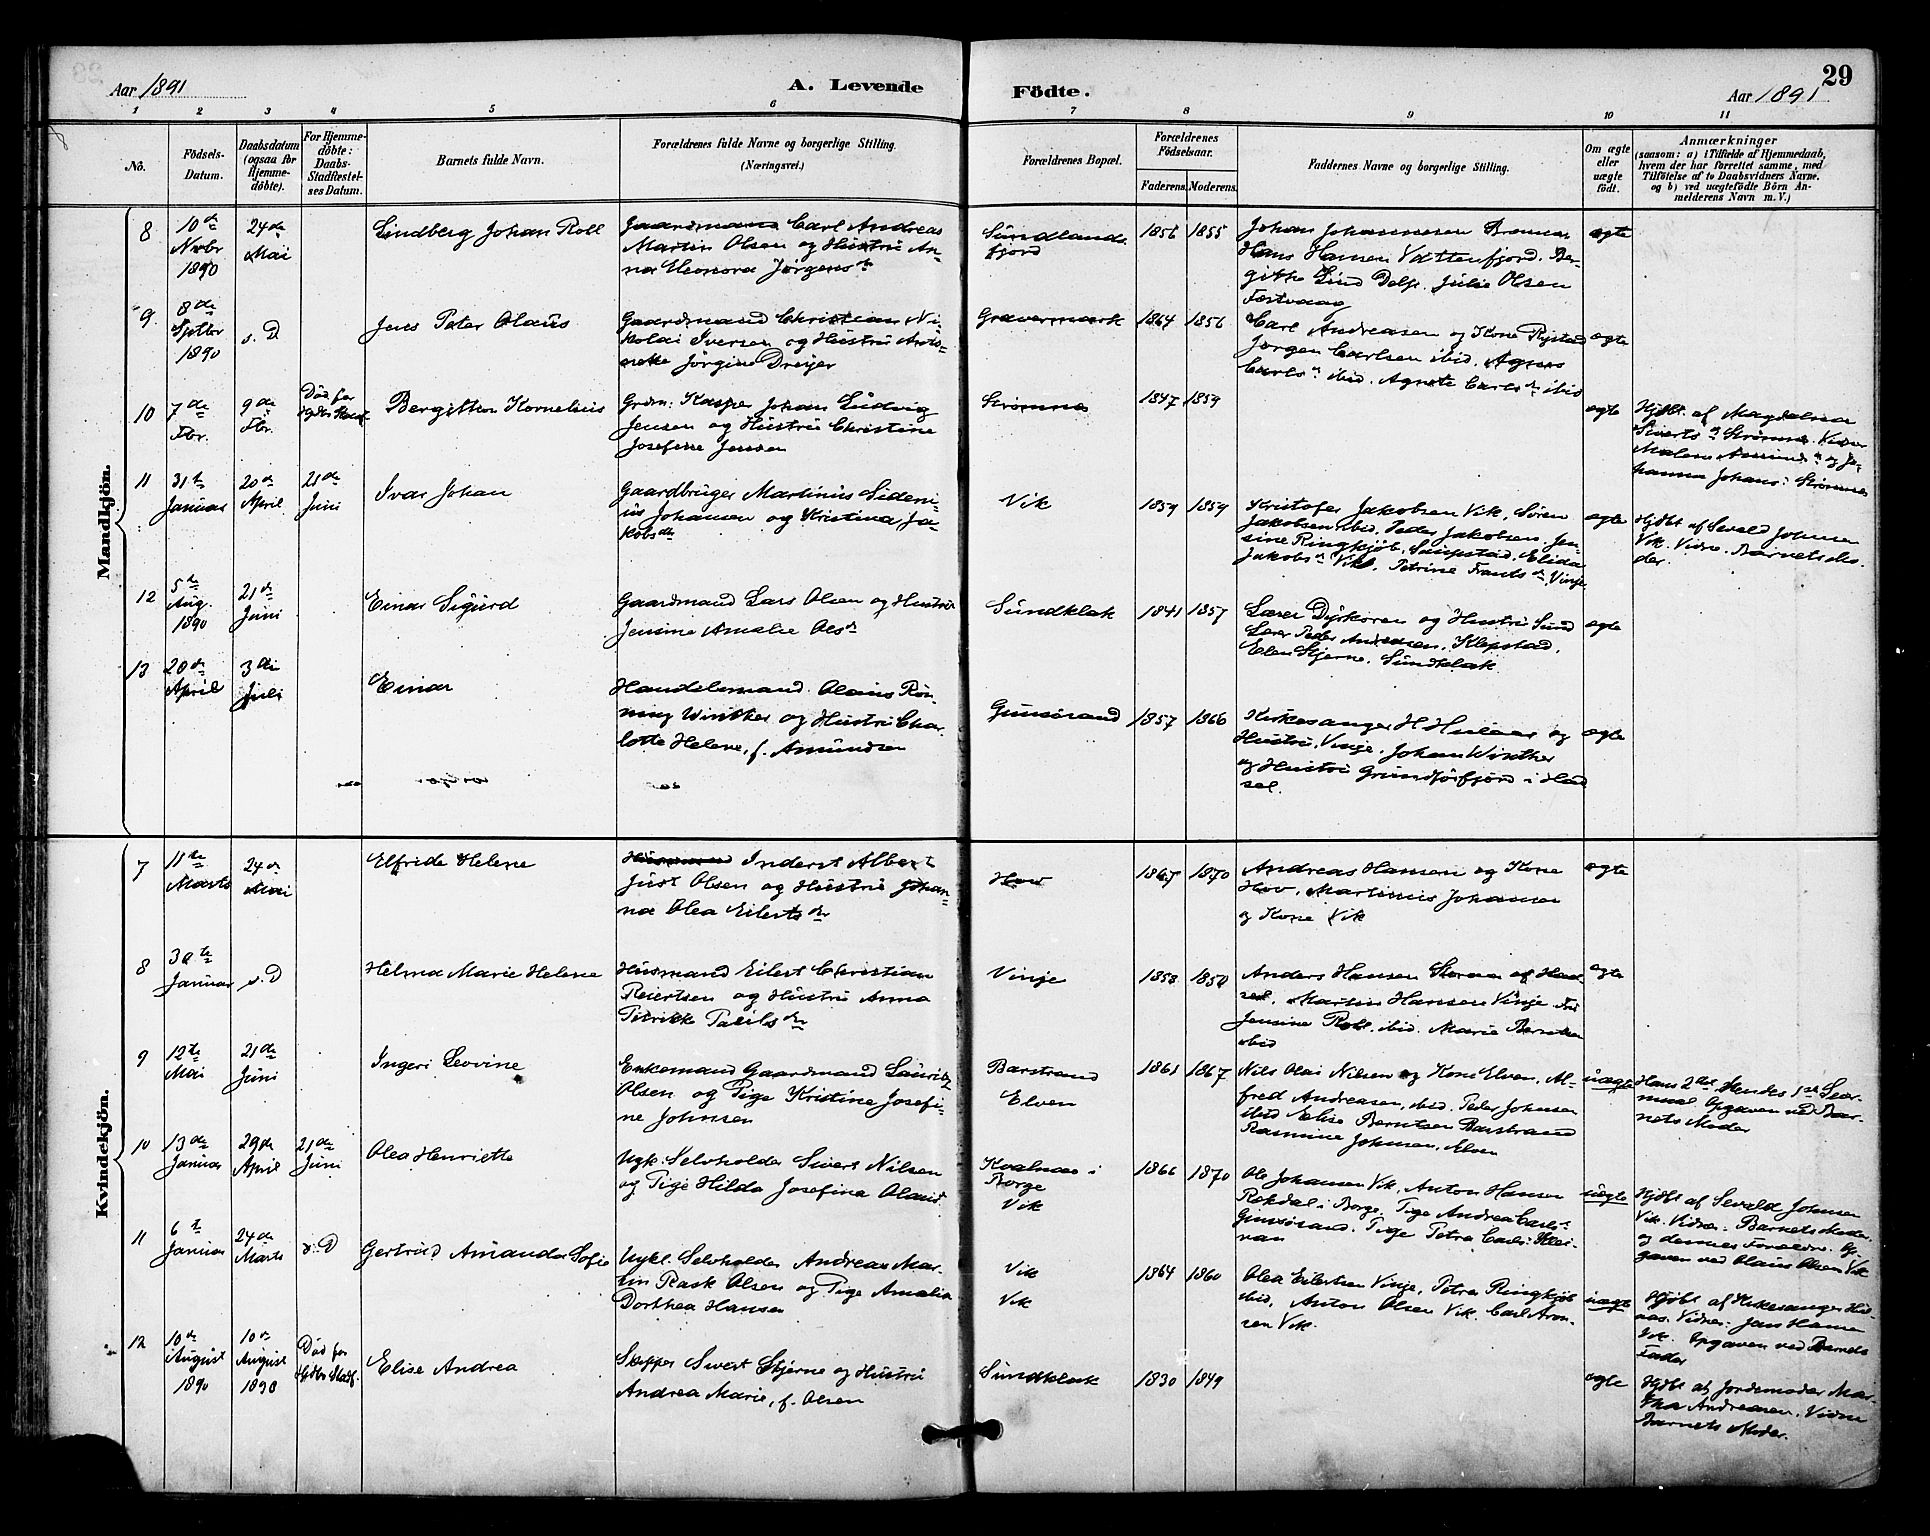 29
Aar 1891
A. Levende
Födte.
Aar 1891
1 2 3 4 5 6 7 8 9 10 11
No.
Födsels-
Datum.
Daabsdatum
(ogsaa for
Hjemme-
döbte).
For Hjemme-
döbte:
Daabs-
Stadfæstel-
ses Datum.
Barnets fulde Navn.
Forældrenes fulde Navne og borgerlige Stilling.
(Næringsvei.)
Forældrenes Bopæl.
Forældrenes
Födselsaar.
Faderens.
Moderens.
Faddernes Navne og borgerlige Stilling.
Om ægte
eller
uægte
födt.
Anmærkninger
(saasom: a) i Tilfælde af Hjemmedaab,
hvem der har forrettet samme, med
Tilföielse af to Daabsvidners Navne.
og b) ved uægtefödte Börn An-
melderens Navn m. V.)
Mandkjön.
8
10de
Novbr
1890
24de
Mai
Lindberg Johan Roll
Gaardmand Carl Andreas
Martin Olsen og Hustru An-
na Eleonora Jørgensdr
Sundlands-
fjord
1856 1855
Johan Johannesen
Hans Hansen Vatterfjord. Ber-
gitte Lind Delp. Julie Olsen
Festvaag
ægte
9.
8de
Septbr
1890
s. D
Jens Peter Olaus
Gaardmand Christian Ni-
kolai Iversen og Hustru
Jørgine Dreyer
Gravermark
1864 1856
Carl Andreasen og Kone Rystad
Jørgen Carlsen ibid. Agnes
Carlsdr ibid. Agnete Carlsdr ibid
ægte
10
7de
Fbr.
9de
Fbr.
Død før
Bergitton Kornelius
Grdm: Kasper Johan Ludvig
Jensen og Hustru Christine
Josefine Jensen
Strømnes
1847 1859
ægte
Hjdbt. af Magdalena
Siverts dr Strømnes. Vidner
Malene Amundsdr og Jo-
hanna Johans: Strømnes
11
31te
Januar
20de
April
21de
Juni
Ivar Johan
Gaardbruger Martinus Sideni-
us Johansen og Kristina Ja-
kobsdr
Vik
1859 1859
Kristofer Jakobsen Vik, Søren
Jakobsen ibid. Peder Jakobsen. Jen-
sine Ringkjøb, Saupstad, Elida
Jakobsdr Vik. Petrine Frantsdr Vinje
ægte
Hjdbt af Sevald Johnsen
Vik. Vidne. Barnets Mo-
der.
12
5te
Aug.
1890
21de
Juni
Einar Sigurd
Gaardmand Lars Olsen og Hustru
Jensine Amalie Olsdr
Sundklak
1841 1857
Lærer Dyrkoren og Hustru Sund
Lærer Peder Andersen, Klepstad,
Elen Stjerne, Sundklak
ægte
13
20de
April
3die
Juli
Einar
Handelsmand Olaus Røn-
ning Winther og Hustru Char-
lotte Helene, f. Amundsen
Gimsøsand
1857 1866
Kirkesanger H Hulaas og
Hustru, Vinje. Johan Winther
og Hustru Grundførfjord i Had
sel.
ægte
Kvindekjön.
7
11te
Marts
24de
Mai
Elfride Helene
Inderst Albert
Just Olsen og Hustru Johan-
na Olea Eilertsdr
Hov
1867 1870
Andreas Hansen og Kone
Hov, Martinus Johansen
og Kone Vik
ægte
8
30te
Januar
s. D
Helma Marie Helene
Husmand Eilert Christian
Reiertsen og Hustru Anna
Petrikke Paulsdr
Vinje
1858 1850
Anders Hansen af Had-
sel, Martin Hansen Vinje.
Jensine Roll ibid. Marie Berntsen
ibid
ægte
9
12te
Mai
21de
Juni
Ingeri Lovine
Enkemand Gaardmand Lauritz
Olsen og Pige Kristine Josefi-
ne Johnsen
Barstrand
Elven
1861 1867
Nils Olai Nilsen og Kone Elven, Al-
fred Andreasen, ibid. Peder Johnsen
ibid Elise Berntsen Barstrand
Rasmine Johnsen, Elven
uægte
Hans 2det Hendes 1ste Leier-
maal Opgaven ved Bar-
nets Moder
10
13de
Januar
29de
April
21de
Juni
Olea Henriette
Ugk. Selvholder Sivert Nilsen
og Pige Hilda Josefina Olausd.
Kvalnæs i
Borge
Vik
1866 1870
Ole Johansen Vik, Anton Hansen
Rekdal i Borge, Pige Andrea Carls:
Gimsøsand. Pige Petra Carls: Klei-
van
uægte
Hjdbt af Sevald Johnsen
Vik. Vidner: Barnets Moder.
og dennes Forældre. Op-
gaven ved Olaus Olsen Vik
11
6te
Januar
24de
Marts
s. D
Gertrud Amanda Sofie
Ugkl. Selvholder Andreas Mar-
tin Rask Olsen og Pige Amalia
Dorthea Hansen
Vik
Vik
1864 1860
Olea Eilertsen Vinje, Petra Ringkjøb
ibid, Anton Olsen Vik. Carl Aron-
sen Vik.
uægte
Hjdbt af Kirkesanger Hul-
aas. Vidner: Jens Hansen
Vik. Opgaven ved Barnets
Fader
12
10de
August
1890
10de
August
1890
Død før
Elise Andrea
Skipper Sivert Stjerne og Hustru
Andrea Marie, f. Olsen
Sundklak
1830 1849
ægte
Hjdbt af Jordemoder Mar-
tha Andreasen. Vidne
Barnets Moder.